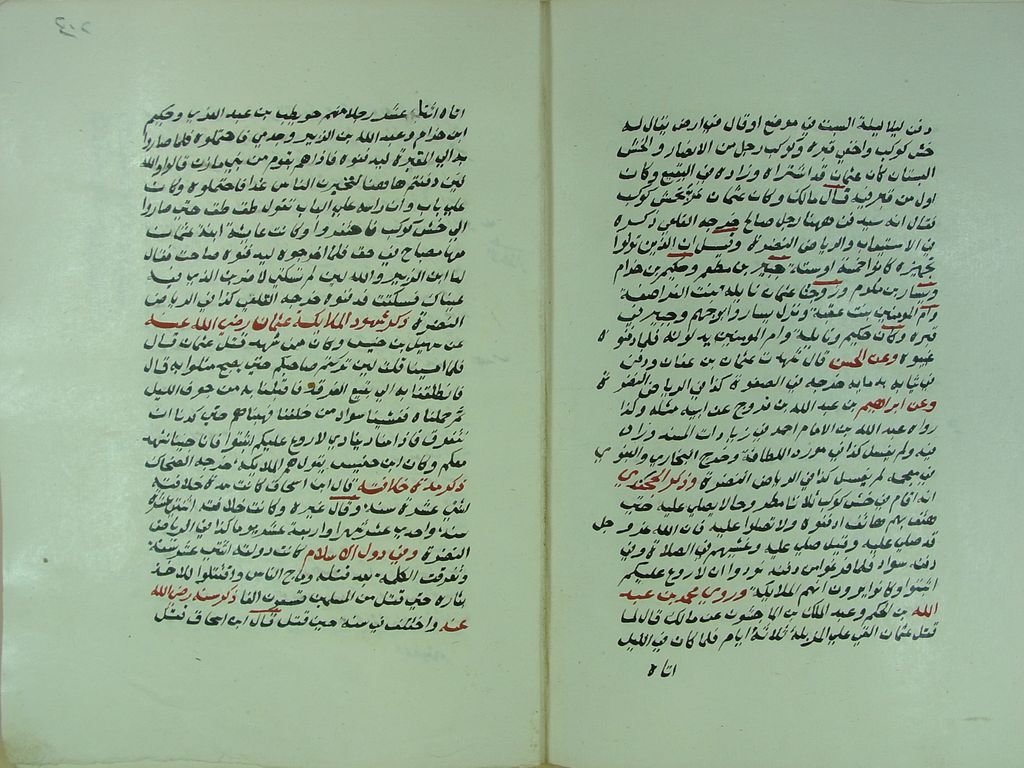 دفن ليلا ليلة السبت في موضع او قال في ارض يقال له
حش كوكب واخفي قبره وكوكب رجل من الانصار والحش
البستان كان عثمان قد اشتراه وزاده في البقيع وكان
اول من قبر فيه قال مالك وكان عثمان مر بحش كوكب
فقال انه سيدفن ههنا رجل صالح خرجه القلعي ذكره
في الاستيعاب والرياض النضرة وقيل ان الذين تولوا
تجهيزه كانوا خمسة او ستة جبير بن مطعم وحكيم بن حزام
ويسار بن مكرم وزوجتا عثمان نايلة بنت الفرافصة
وام البنين بنت عقبة ونزل يسار وابو جهم وجبير في
قبره وكان حكيم ونايلة وام البنين يدلونه فلما دفنوه
غيبوه وعن الحسن قال شهدت عثمان بن عفان ودفن
في ثيابه بدمايه خرجه في الصفوة كذا في الرياض النضرة
وعن ابراهيم بن عبد الله بن فروخ عن ابيه مثله وكذا
رواه عبد الله بن الامام احمد في زيادات المسند وزاد
فيه ولم يغسل كذا في مورد اللطافة وخرج البخاري والبغوي
في معجمه لم يغسل كذا في الرياض النضرة وذكر الخجندي
انه اقام في حش كوكب ثلاثا مطروحا لا يصلي عليه حتى
هتف بهم هاتف ادفنوه ولا تصلوا عليه فان الله عز وجل
قد صلي عليه وقيل صلي عليه وغشيهم في الصلاة وفي
دفنه سواد فلما فرغوا من دفنه نودوا ان لا روع عليكم
اثبتوا وكانوا يرون انهم الملايكة وروي محمد بن عبد
الله بن الحكم وعبد الملك بن الماجشون عن مالك قال لما
قتل عثمان القي علي المزبلة ثلاثة ايام فلما كان في الليل
اتاه
اتاه اثنا عشر رجلا منهم حويطب بن عبد العزي وحكيم
ابن حزام وعبد الله بن الزبير وجدي فاحتملوه فلما صاروا
به الي المقبرة ليدفنوه فاذا هم بقوم من بني مازن قالوا والله
لين دفنتموه ههنا لنخبرن الناس غدا فاحتملوه وكان
علي باب وان راسه علي الباب تقول طق طق حتي صاروا
الي حش كوكب فاحتفروا وكانت عايشة ابنة عثمان
معها مصباح في حق فلما اخرجوه ليدفنوه صاحت فقال
لها ابن الزبير والله لين لم تسكتي لاضربن الذي فيه
عيناك فسكتت فدفنوه خرجه القلعي كذا في الرياض
النضرة ذكر شهود الملايكة عثمان رضي الله عنه
عن سهيل بن خنيس وكان ممن شهد قتل عثمان قال
فلما امسينا قلت لين تركتم صاحبكم حتي يصبح مثلوا به قال
فانطلقنا به الي بقيع الغرقد فامكنا به من جوف الليل
ثم حملناه فغشينا سواد من خلفنا فهبناهم حتي كدنا ان
نتفرق فاذا مناد ينادي لا روع عليكم اثبتوا فانا جينا لنشهده
معكم وكان ابن خنيس يقول هم الملايكة خرجه الضحاك
ذكر مدة خلافته قال ابن اسحاق كانت مدة خلافته
اثنتي عشرة سنة وقال غيره وكانت خلافته اثنتي عشرة
سنة واحد عشر شهرا واربعة عشر يوما كذا في الرياض
النضرة وفي دول الاسلام كانت دولته اثنتي عشرة سنة
وتفرقت الكلمة بعد قتله وماج الناس واقتتلوا للاخذ
بثاره حتي قتل من المسلمين تسعون الفا ذكر سنه رضي الله
عنه واختلف في سنه حين قتل قال ابن اسحاق قتل